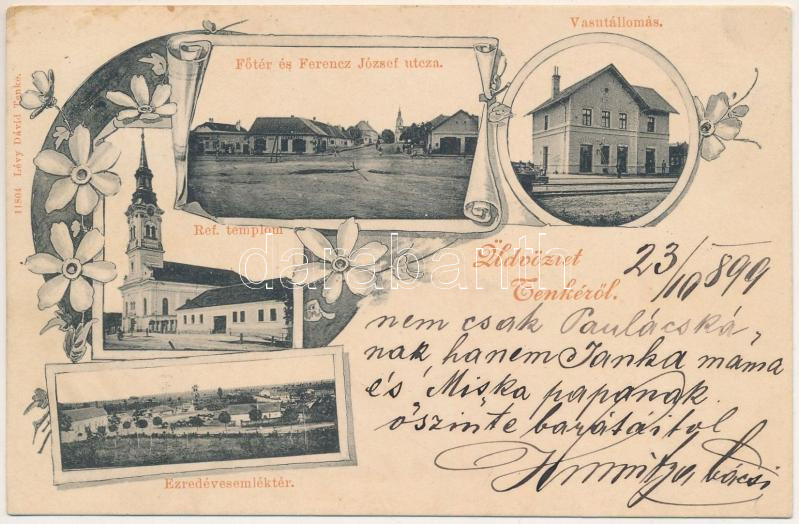 Vasutállomás.
Főtér és Ferencz József utcza.
11804 Lévy Dávid Tenke.
Ref. templom
darabanth
Üdvözlet
Tenkéről.
23/10 899
nem csak Paulácská„
nak, hanem Janka mama
és Miska papának
őszinte barátaitol
bácsi
Ezredévesemléktér.